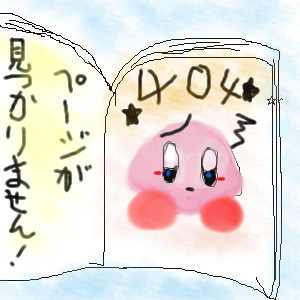 404
ページが
見つかりません!